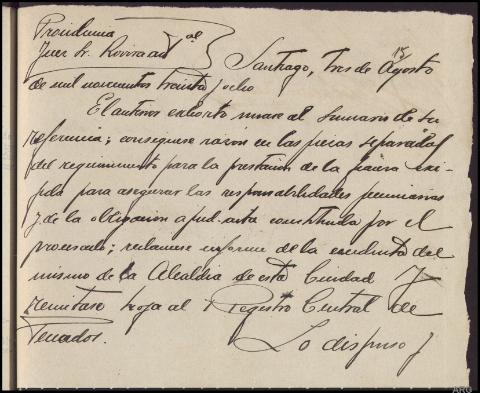 Providencia
Juez Sr.
Santiago, tres de Agosto
de mil novecientos treinta y ocho
El anterior exhorto unase al sumario de su
referencia; consignese razon en las piezas separadas
del requerimiento para la prestacion de la fianza exi-
gida para asegurar las responsabilidades pecuniarias
y de la obligacion apud-acta constituida por el
procesado; reclamese informe de la conducta del
mismo de la Alcaldia de esta Ciudad y
remitase hoja al Registro Central de
Penados.
Lo dispuso y
ARG